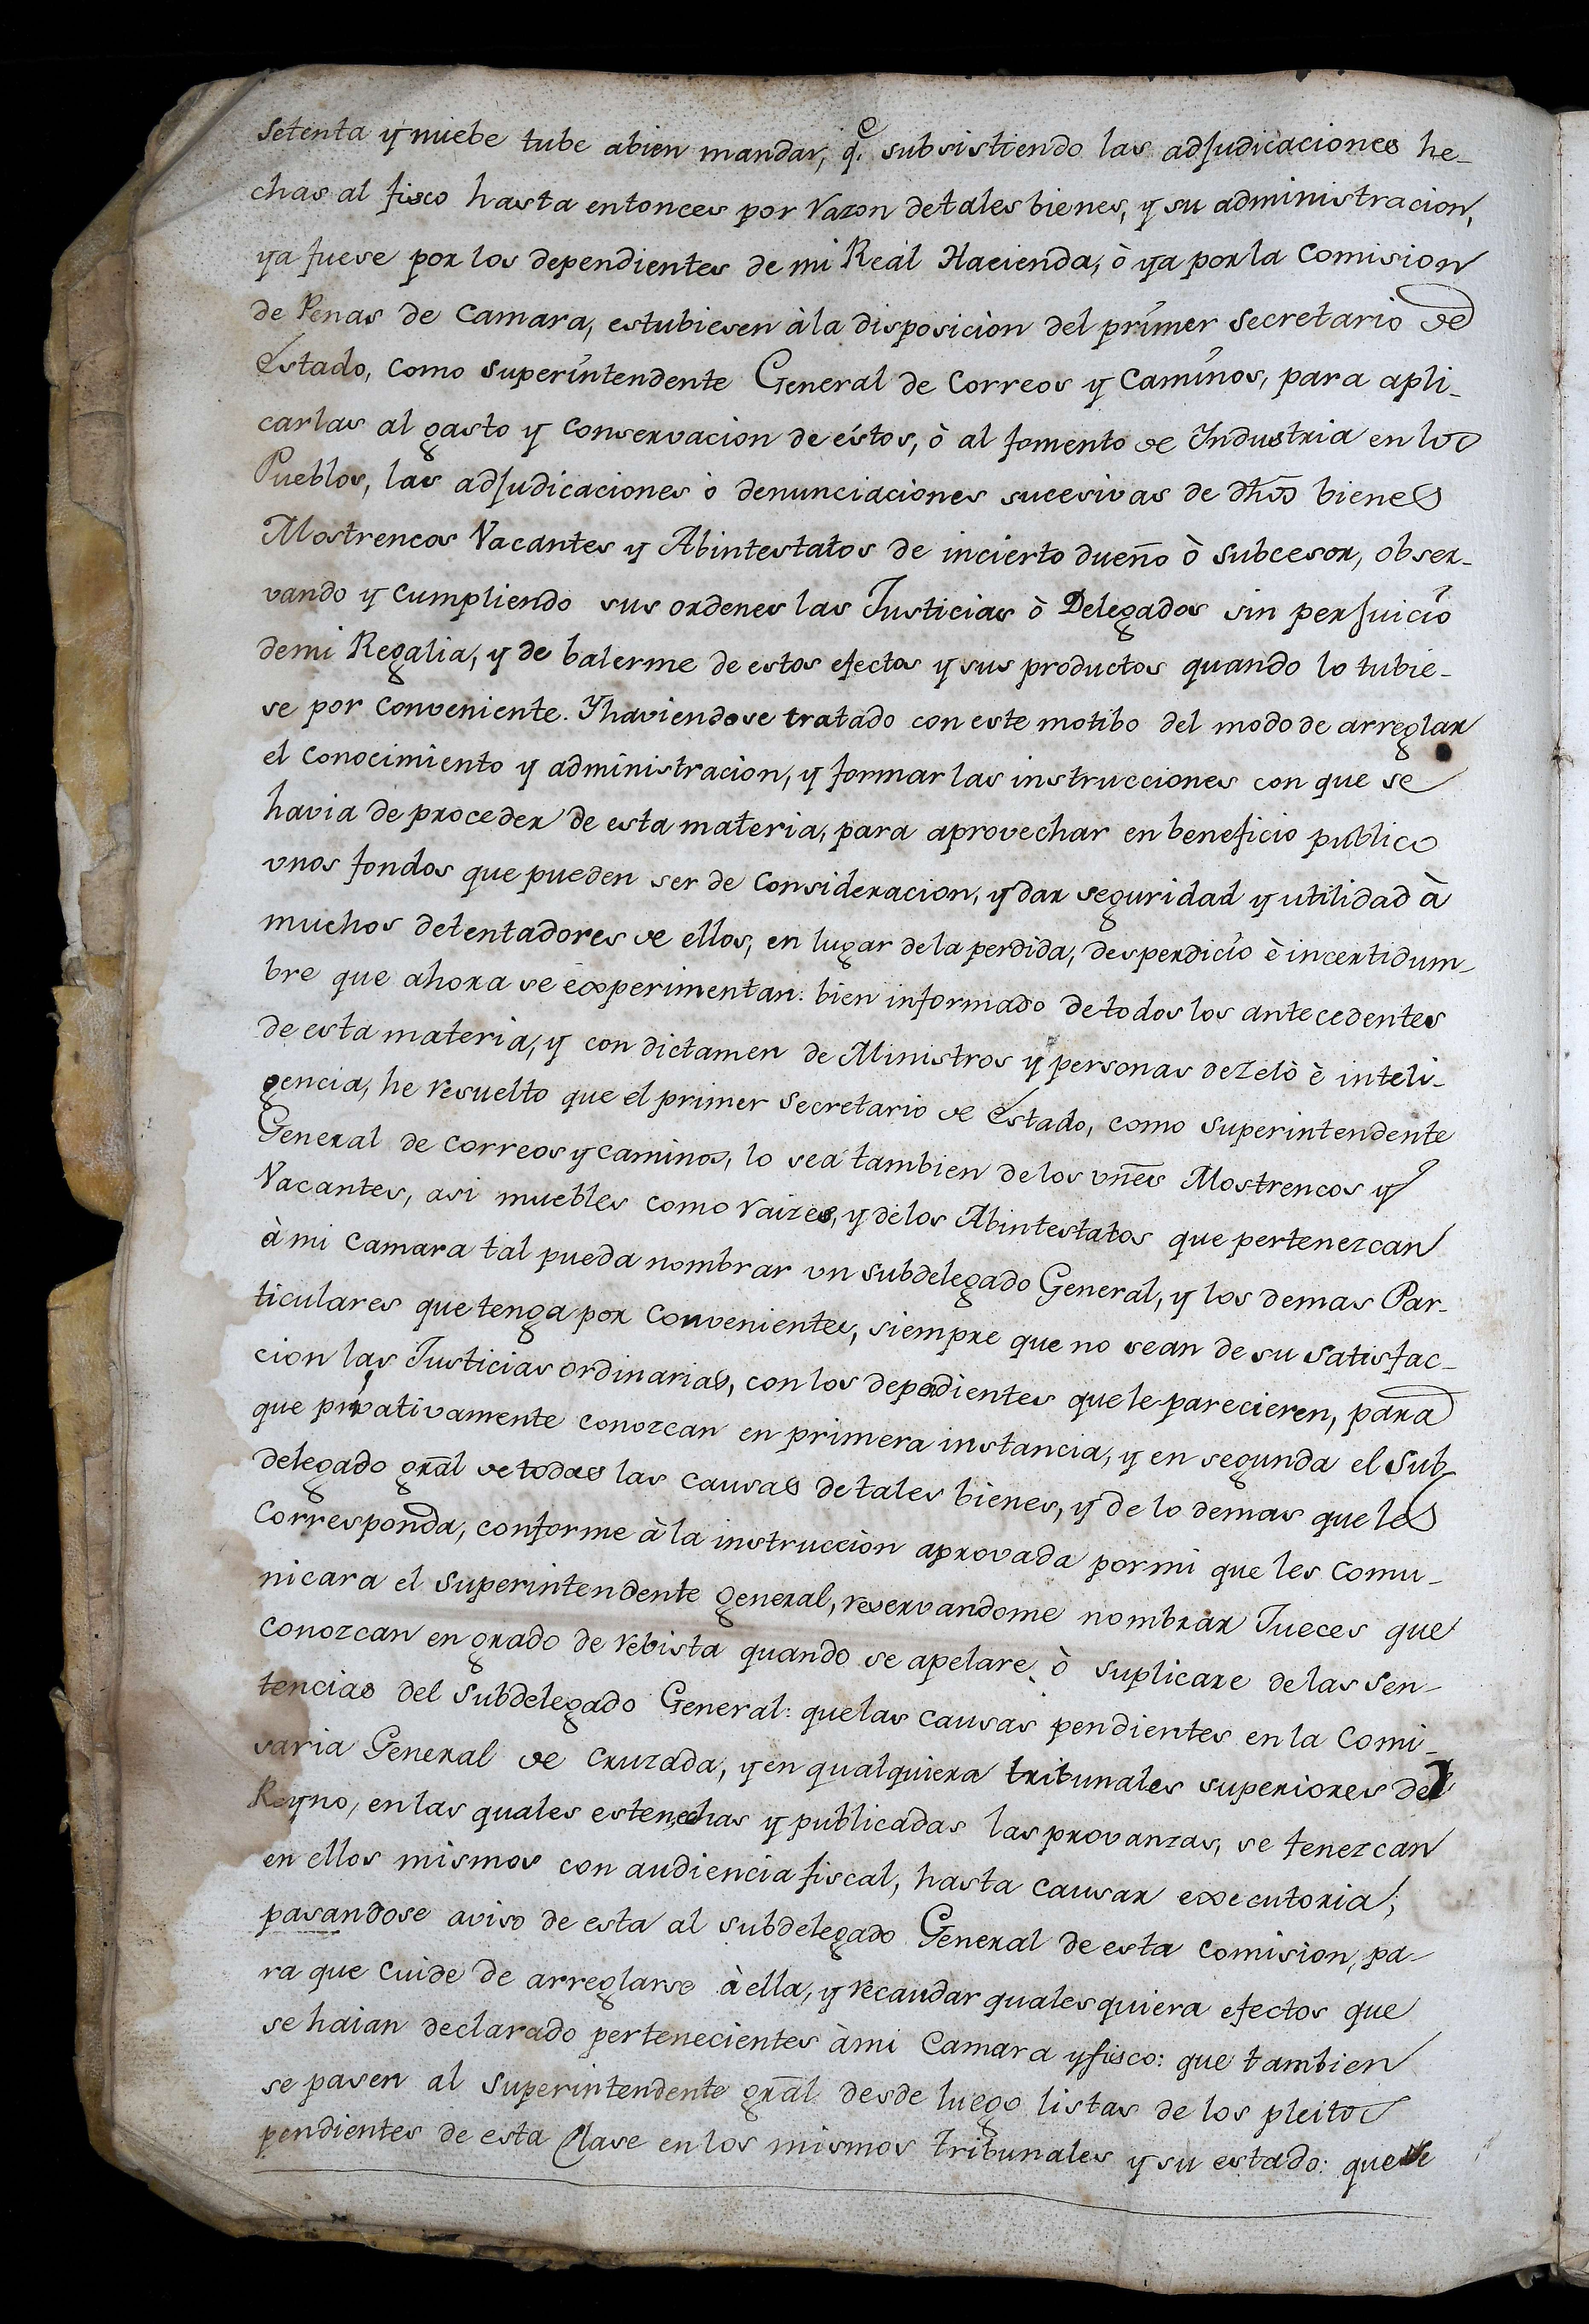 setenta y nuebe tube abien mandar, q.e subsistiendo las adjudicaciones he-
chas al fisco hasta entonces por razon detales bienes, y su administracion,
ya fuese por los dependientes de mi Real Hacienda, ò ya por la Comision
de Penas de Camara, estubiesen à la disposicion del primer Secretario de
Estado, como Superintendente General de Correos y Caminos, para apli-
carlas al gasto y conservacion de éstos, ò al fomento de Industria en los
Pueblos, las adjudicaciones ò denunciaciones sucesivas de dhōs bienes
Mostrencos Vacantes y Abintestatos de incierto dueño ò subcesor, obser-
vando y cumpliendo sus ordenes las Justicias ò Delegados sin perjuicio
demi Regalia, y de balerme de estos efectos y sus productos quando lo tubie-
se por conveniente. Y haviendose tratado con este motibo del modo de arreglar
el conocimiento y administracion, y formar las instrucciones con que se
havia de proceder de esta materia, para aprovechar en beneficio publico
vnos fondos que pueden ser de consideracion, y dar seguridad y utilidad à
muchos detentadores de ellos, en lugar dela perdida, desperdicio è incertidum-
bre que ahora se experimentan: bien informado de todos los antecedentes
de esta materia, y con dictamen de Ministros y personas de zelo è inteli-
gencia, he resuelto que el primer Secretario de Estado, como Superintendente
General de Correos y Caminos, lo sea tambien de los vnēs Mostrencos y
Vacantes, asi muebles como raizes, y delos Abintestatos que pertenezcan
à mi Camara tal pueda nombrar vn Subdelegado General, y los demas Par-
ticulares que tenga por convenientes, siempre que no sean de su satisfac-
cion las Justicias ordinarias, con los dependientes que le parecieren, para
que privativamente conozcan en primera instancia, y en segunda el Sub-
delegado grāl de todas las causas de tales bienes, y de lo demas que les
corresponda, conforme à la instruccion aprovada por mi que les comu-
nicara el Superintendente general, reservandome nombrar Jueces que
conozcan en grado de rebista quando se apelare, ò suplicare de las sen-
tencias del Subdelegado General: que las causas pendientes en la Comi-
saria General de Cruzada, y en qualquiera tribunales superiores del
Reyno, en las quales esten echas y publicadas las provanzas, se fenezcan
en ellos mismos con audiencia fiscal, hasta causar executoria;
pasandose aviso de esta al subdelegado General de esta comision, pa-
ra que cuide de arreglarse à ella, y recaudar quales quiera efectos que
se haian declarado pertenecientes à mi Camara y fisco: que tambien
se pasen al Superintendente grāl desde luego listas de los pleitos
pendientes de esta Clase en los mismos tribunales y su estado: que se